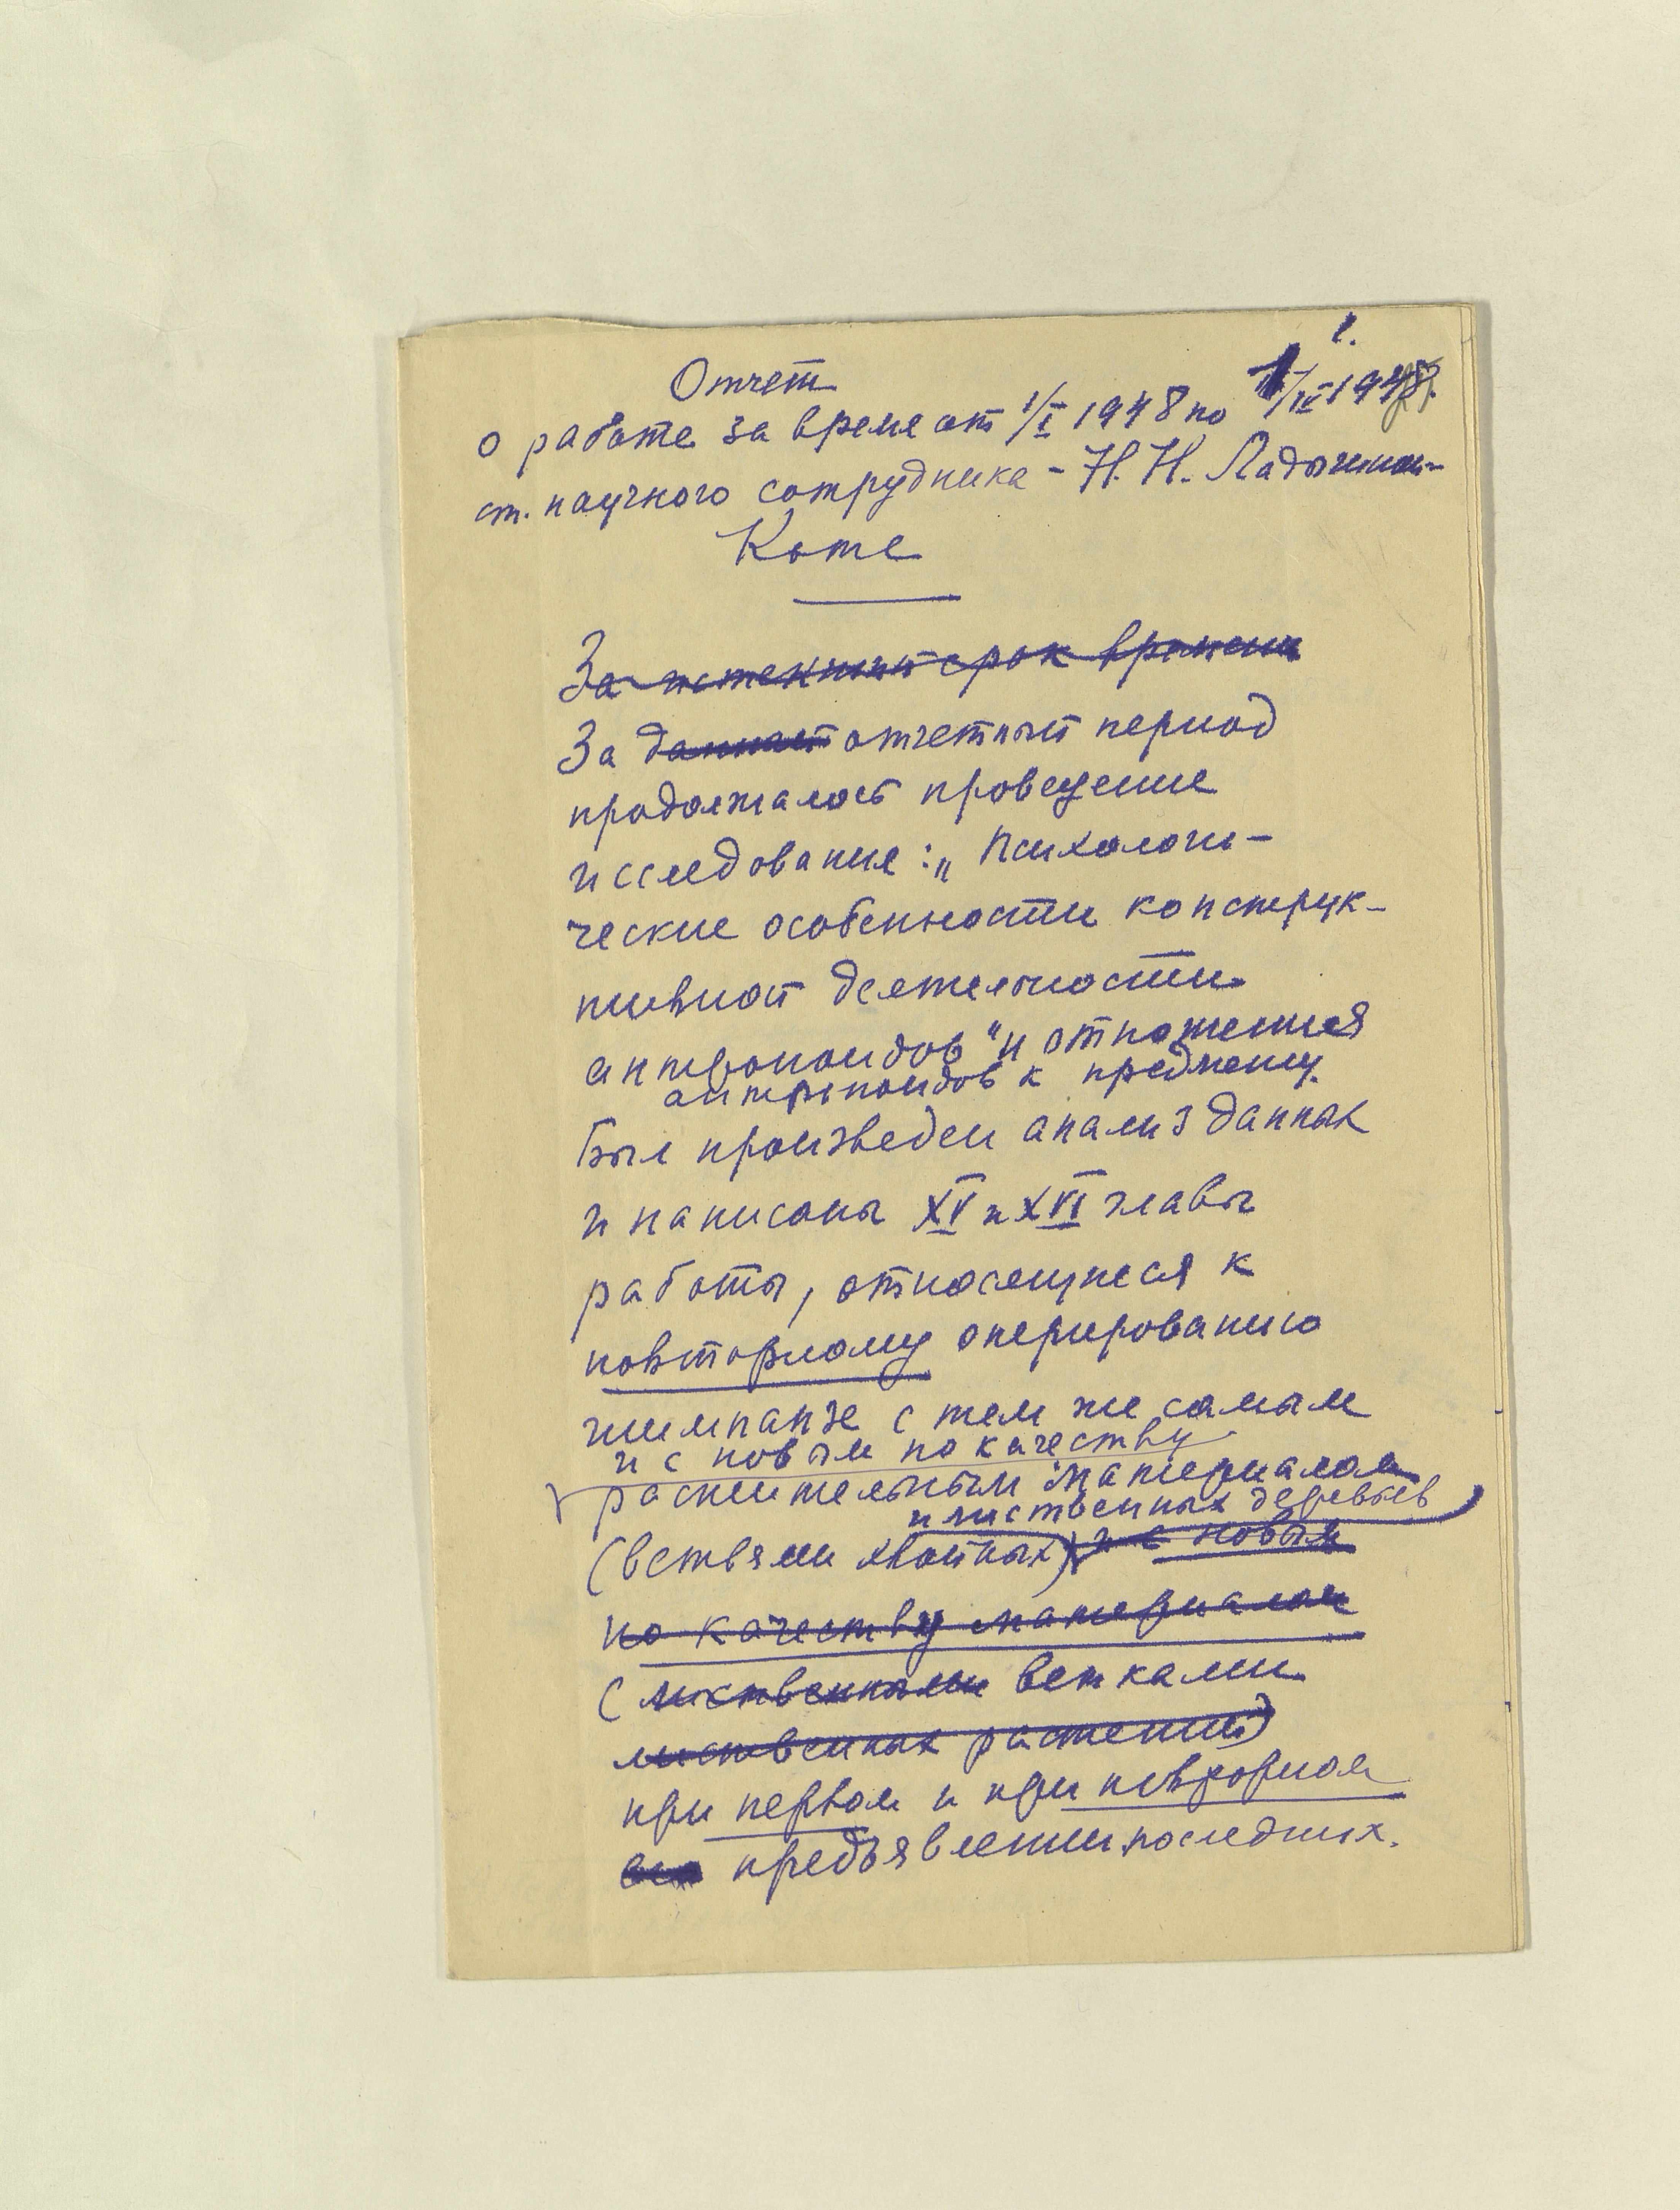 1.
Отчет
о работе за время от 1/I 1948 по 1/IV 1948.
ст. научного сотрудника - Н. Н. Ладыгиной-
Котс
За истекший срок времени
За данный отчетный период
продолжалось проведение
исследования: „Психологи-
ческие особенности конструк-
тивной деятельности
антропоидов" и отношения
антропоидов к предмету.
Был произведен анализ данных
и написаны XV и XVI главы
работы, относящиеся к
повторному оперированию
шимпанзе с тем же самым
и с новым по качеству
растительным материалом
и лиственных деревьев
(ветвями хвойных) и с новым
по качеству материалом
(лиственными ветками
лиственных растений)
при первом и при повторном
предъявлении последних.